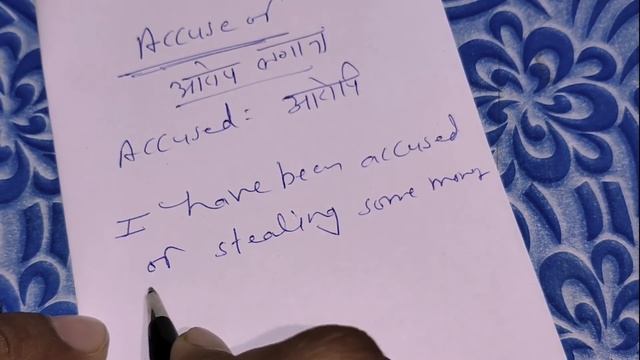 Accuse of
आरोप लगाना
Accused: आरोपि
I have been accused
of stealing some money